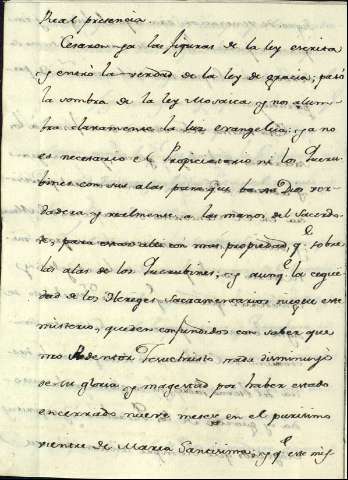 Real presencia.
Cesaron ya las figuras de la ley escrita
y entró la verdad de la ley de gracia; pasó
la sombra de la ley Mosaica y nos alum-
bra claramente la luz evangelica: ya no
es necesario el Propiciatorio ni los Queru-
bines con sus alas para que Dios ver-
dadera y realmente a las manos del Sacerdo-
te, para estar alli con mas propiedad, q.e sobre
las alas de los Querubines, y aunq.e la cegue-
dad de los Hereges Sacramentarios niegue este
misterio, queden confundidos con saber que
nro Redentor Jesuchristo nada disminuyó
de su gloria y magestad por haber estado
encerrado nueve meses en el purisimo
vientre de Maria Santisima, y q.e este mis